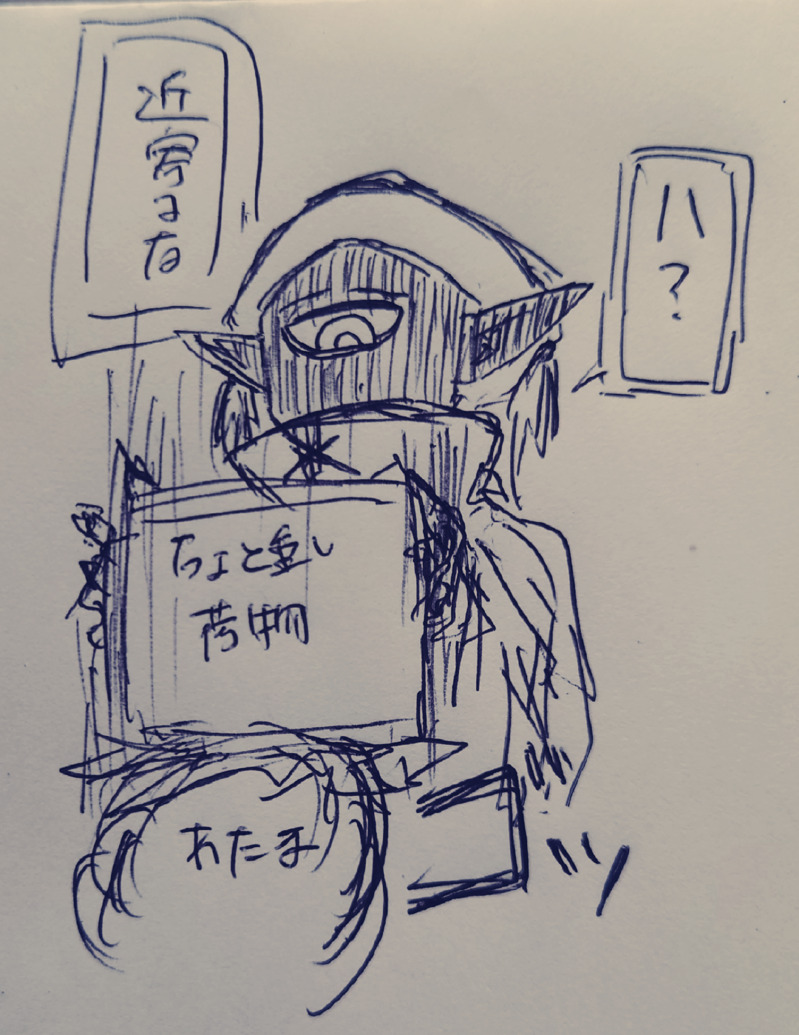 ハ?
近寄るな
ちょと重い
荷物
あたま
ドッ